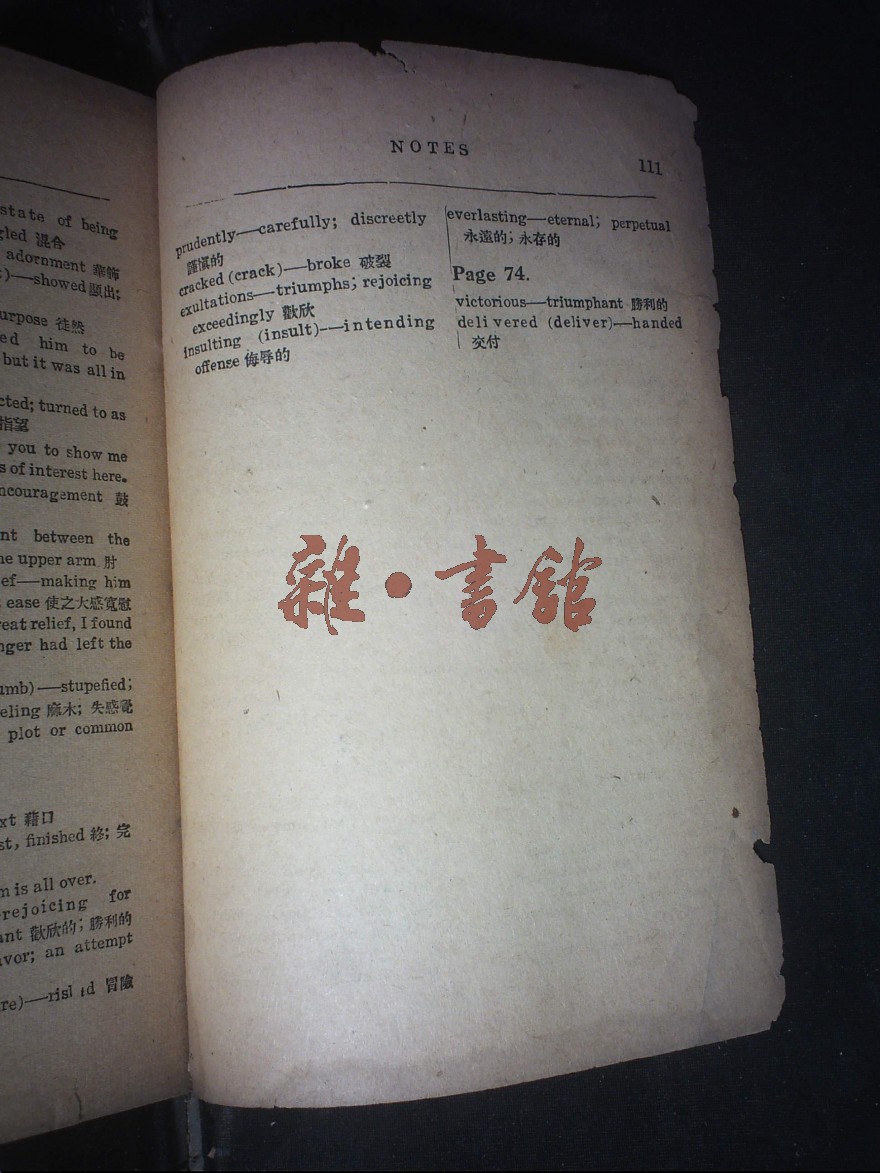 state of being
混合
adornment 華飾
showed 顯出;
徒然
him to be
but it was all in
turned to as
指望
you to show me
of interest here.
鼓
between the
upper arm 肘
making him
ease 使之大感寬慰
relief, I found
had left the
stupefied;
麻木; 失感覺
plot or common
藉口
finished 終; 完
is all over.
rejoicing for
歡欣的; 勝利的
an attempt
冒險
NOTES
111
prudently—carefully; discreetly
謹愼的
cracked (crack)—broke 破裂
exultations—triumphs; rejoicing
exceedingly 歡欣
insulting (insult)—intending
offense 侮辱的
everlasting—eternal; perpetual
永遠的; 永存的
Page 74.
victorious—triumphant 勝利的
delivered (deliver)—handed
交付
雜·書館